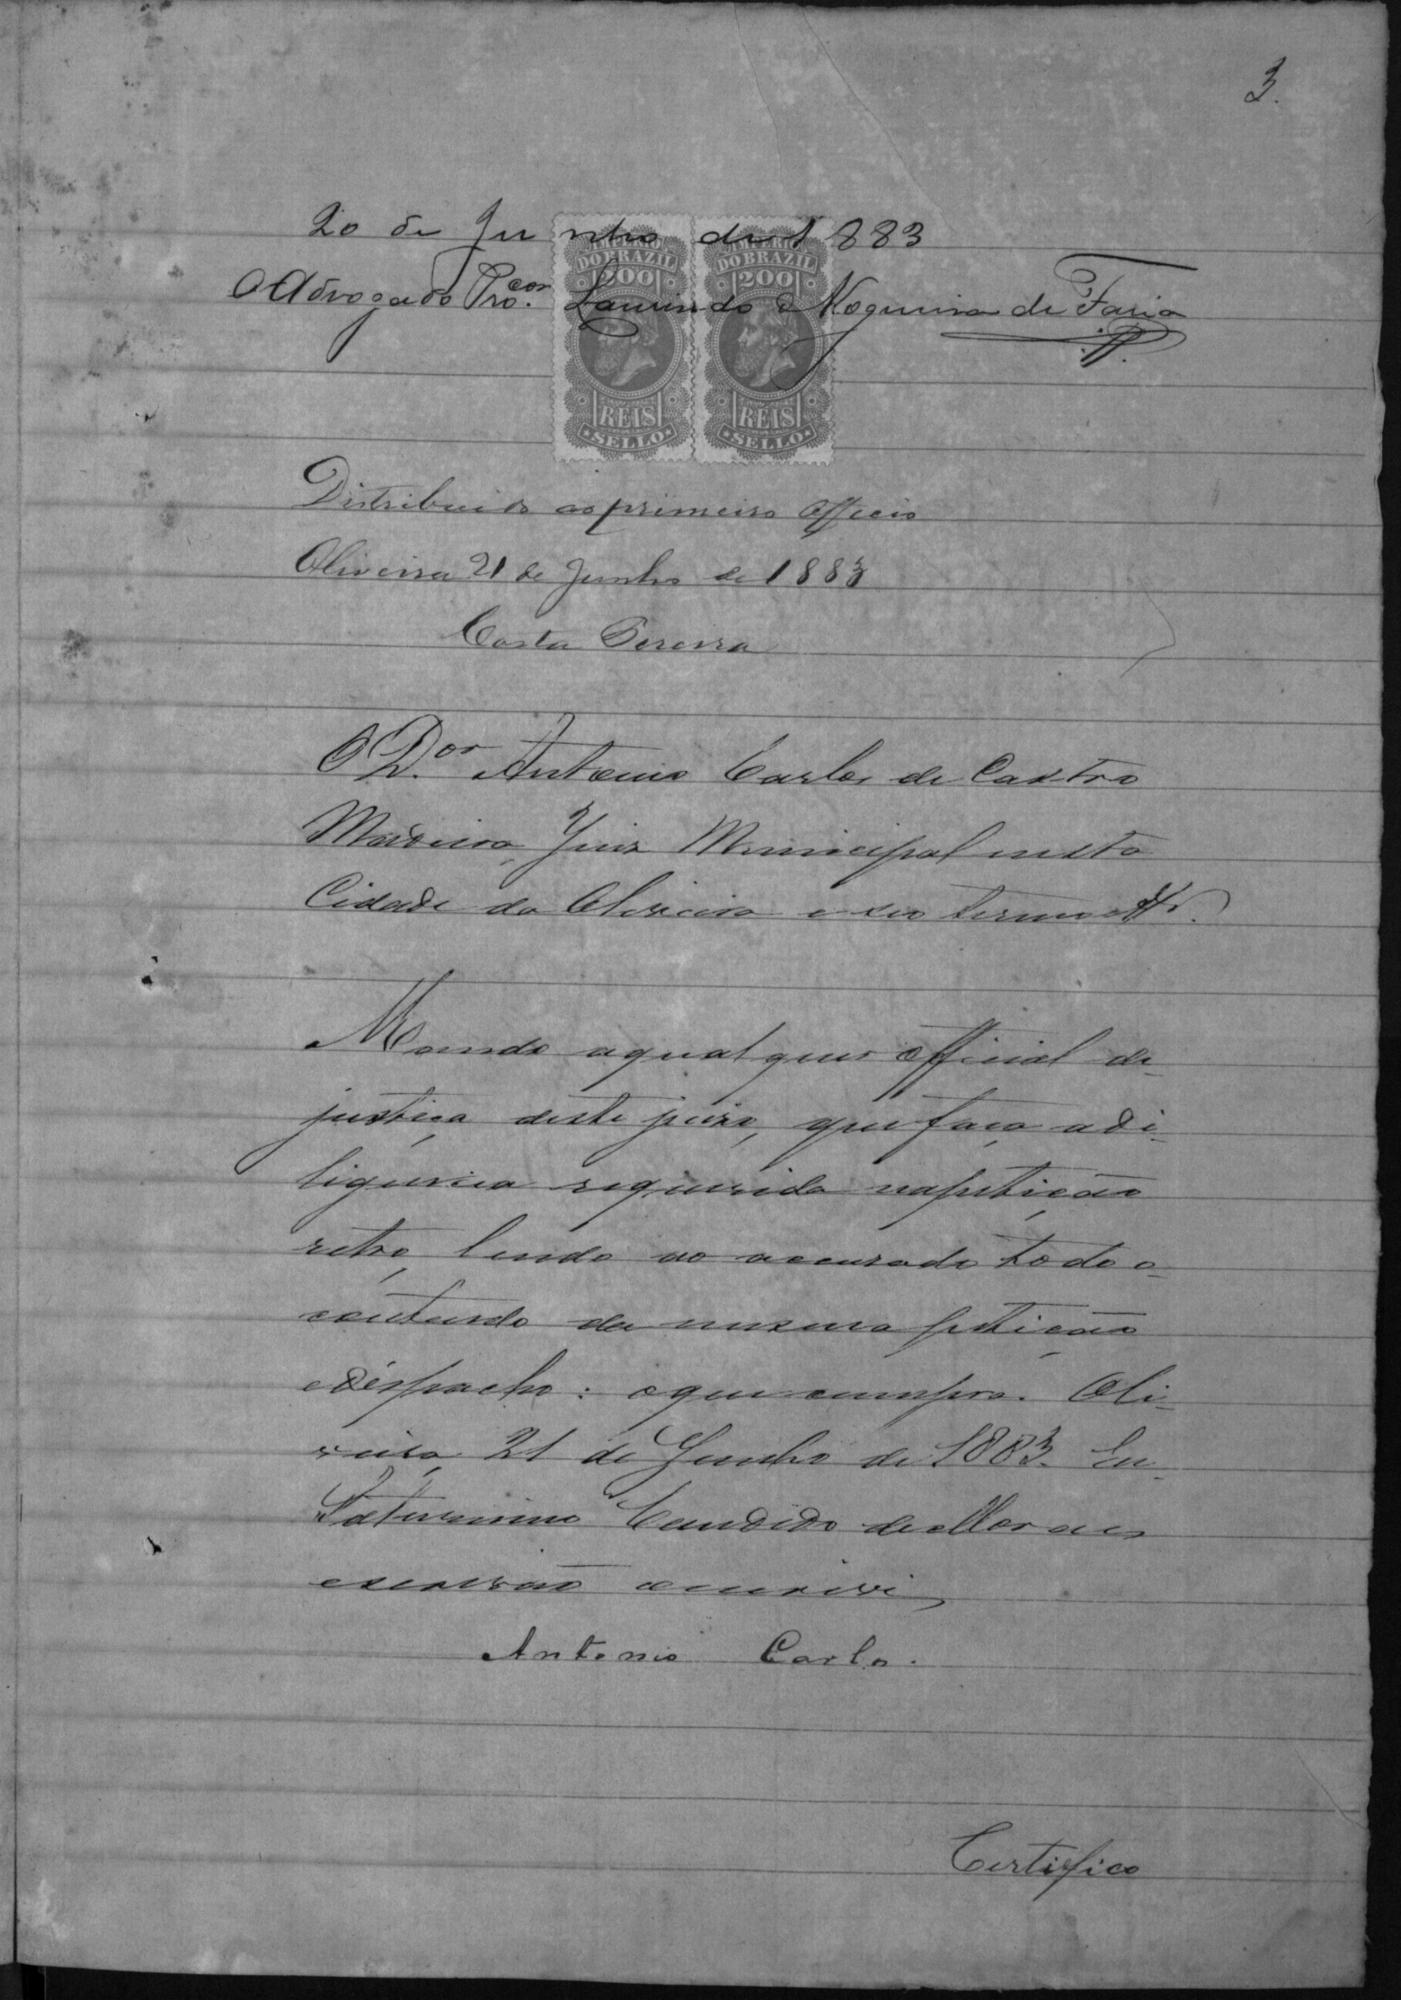 3.
20 de Junho de 1883
O Advogado Pro.cor Laurindo Nogueira de Faria
IMPERIO DO BRAZIL 200 RÉIS SELLO
IMPERIO DO BRAZIL 200 RÉIS SELLO
Distribuido ao primeiro Officio
Oliveira 21 de Junho de 1883
Costa Pereira
O D.or Antonio Carlos de Castro
Madeira, Juiz Municipal nesta
Cidade da Oliveira e seu termo
Mando a qualquer official de
justiça deste juizo, que faça a di-
ligencia requerida na petição
retro, lendo ao accusado todo o
conteudo da mesma petição
e despacho: o que cumpra. Oli-
veira, 21 de Junho de 1883. Eu
Saturnino Candido de Moraes
escrivão o escrivi
Antonio Carlos.
Certifico